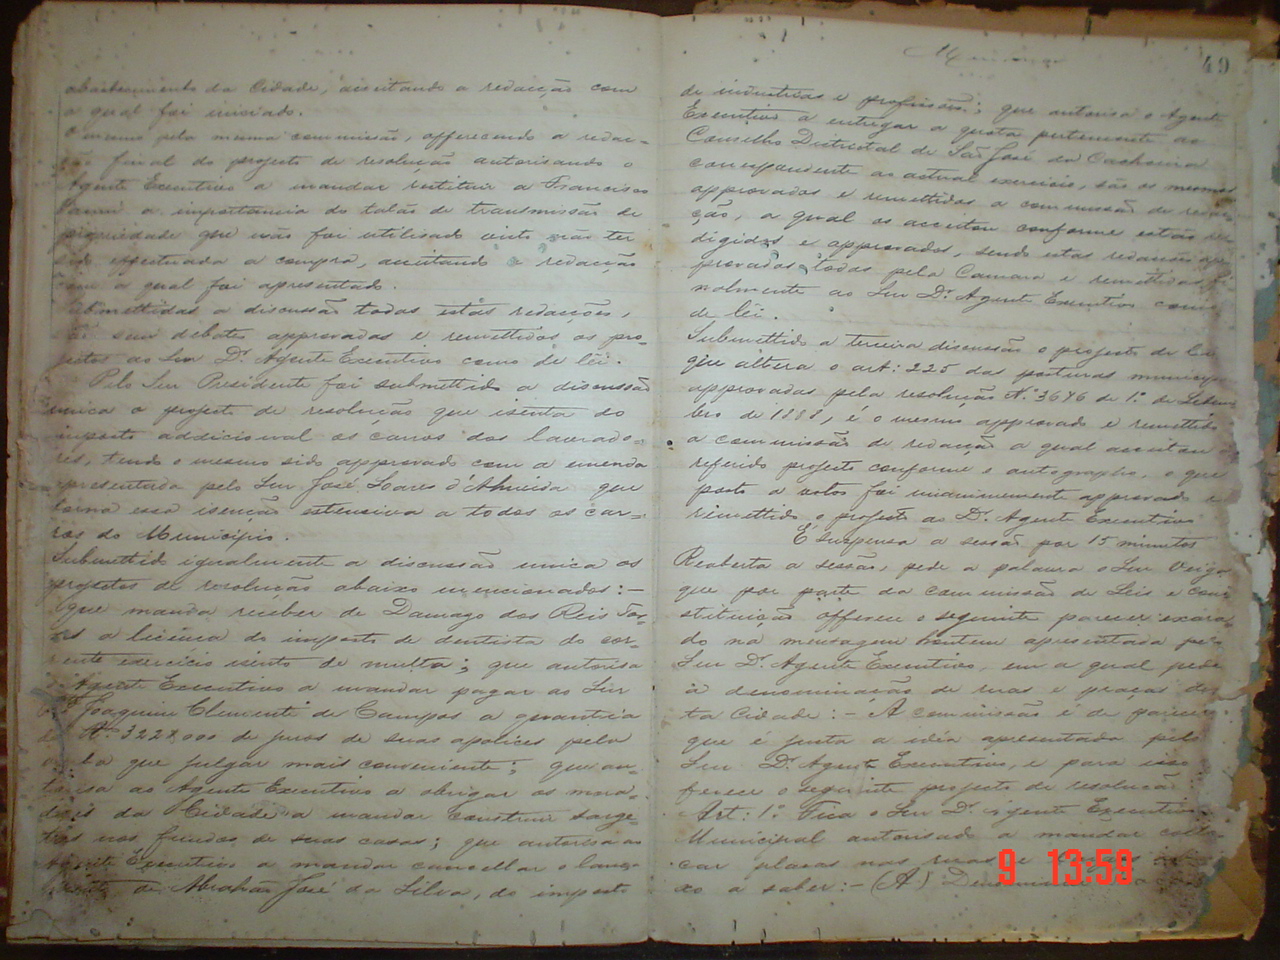 abastecimento da Cidade, acceitando a redacção com
a qual foi iniciado.
O mesmo pela mesma commissão, offerecendo a redac-
ção final do projecto de resolução autorisando o
Agente Executivo a mandar restituir a Francisco
a importancia do talão de transmissão de
propriedade que não foi utilisado visto não ter
sido effectuada a compra, acceitando a redacção
com a qual foi apresentado.
Submettidas a discussão todas estas redacções,
são sem debate approvadas e remettidos os pro-
jectos ao Snr Dr. Agente Executivo como de lei.
Pelo Snr Presidente foi submettido a discussão
unica o projecto de resolução que isenta do
imposto addicional os carros dos lavrado-
res, tendo o mesmo sido approvado com a emenda
apresentada pelo Snr José Soares d'Almeida que
torna essa isenção extensiva a todos os car-
ros do Municipio.
Submettido igualmente a discussão unica os
projectos de resolução abaixo mencionados:-
que manda receber de Damaso dos Reis
a licença do imposto de dentista do cor-
rente exercicio isento de multa; que autorisa
o Agente Executivo a mandar pagar ao Snr
Joaquim Clemente de Campos a quantia
de juros de suas apolices pela
que julgar mais conveniente; que au-
torisa ao Agente Executivo a obrigar os mora-
dores da Cidade a mandar construir sarge-
tas nos fundos de suas casas; que autorisa ao
Agente Executivo a mandar cancellar o lança-
mento de Abrahão José da Silva, do imposto
49
de industrias e profissões; que autorisa o Agente
Executivo a entregar a quota pertencente ao
Conselho Districtal de São José da Cachoeira
correspondente ao actual exercicio, são os mesmos
approvados e remettidos a commissão de redac-
ção, a qual os acceitou conforme estão re-
digidos e approvados, sendo estas redacções ap-
provadas todas pela Camara e remettidas fi-
nalmente ao Snr Dr. Agente Executivo como
de lei.
Submettido a terceira discussão o projecto de lei
que altera o art: 225 das posturas municipaes
approvadas pela resolução Nº 3676 de 1º de Setem-
bro de 1888, é o mesmo approvado e remettido
a commissão de redacção a qual acceitou
referido projecto conforme o autographo, o que
posto a votos foi unanimemente approvado e
remettido o projecto ao Dr. Agente Executivo
É suspensa a sessão por 15 minutos
Reaberta a sessão, pede a palavra o Snr Veiga
que por parte da commissão de Leis e con-
stituição offerece o seguinte parecer exara-
do na mensagem hontem apresentada pelo
Snr Dr. Agente Executivo, em a qual pede
a denominação de ruas e praças des-
ta Cidade:- A commissão é de parecer
que é justa a idéa apresentada pelo
Snr Dr. Agente Executivo, e para isso
offerece o seguinte projecto de resolução
Art: 1º Fica o Snr Dr. Agente Executivo
Municipal autorisado a mandar collo-
car placas nas ruas e
xo a saber:- (A)
9 13:59